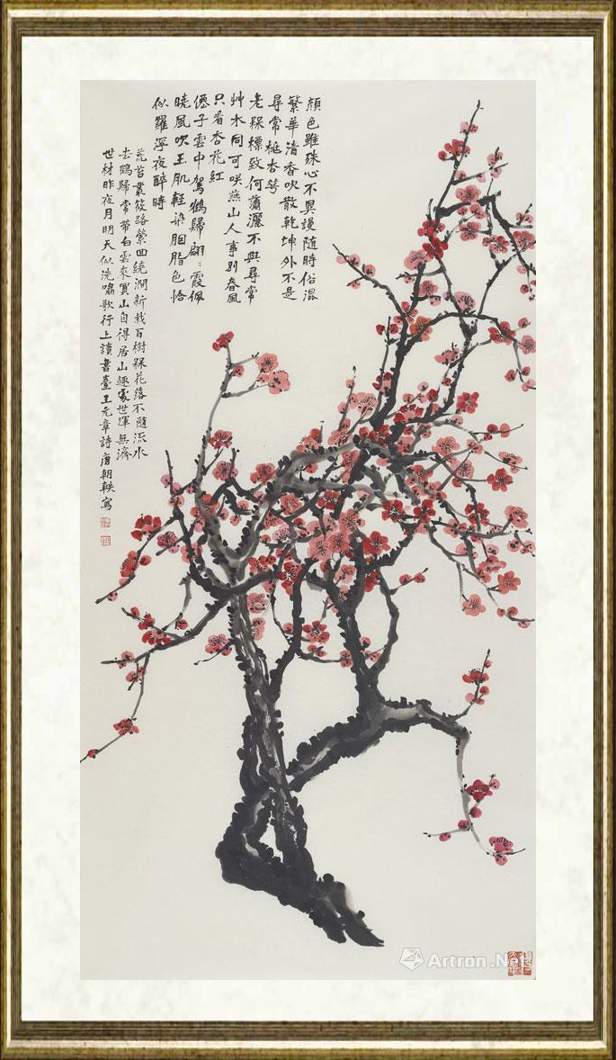 顏色雖殊心不異謾隨時俗混
繁華清香吹散乾坤外不是
尋常桃杏芲
老槑標致何蕭灑不與尋常
艸木同可咲燕山人事別春風
只看杏花紅
僊子雲中駕鶴歸翩〻霞佩
曉風吹玉肌輕染胭脂色恰
似羅浮夜醉時
荒苔叢筱路縈回繞澗新栽百樹槑花落不隨流水
去鶴歸常帶白雲來買山自得居山趣處世渾無濟
世材昨夜月明天似洗嘯歌行上讀書臺王元章詩唐朝軼寫
Artron.Net